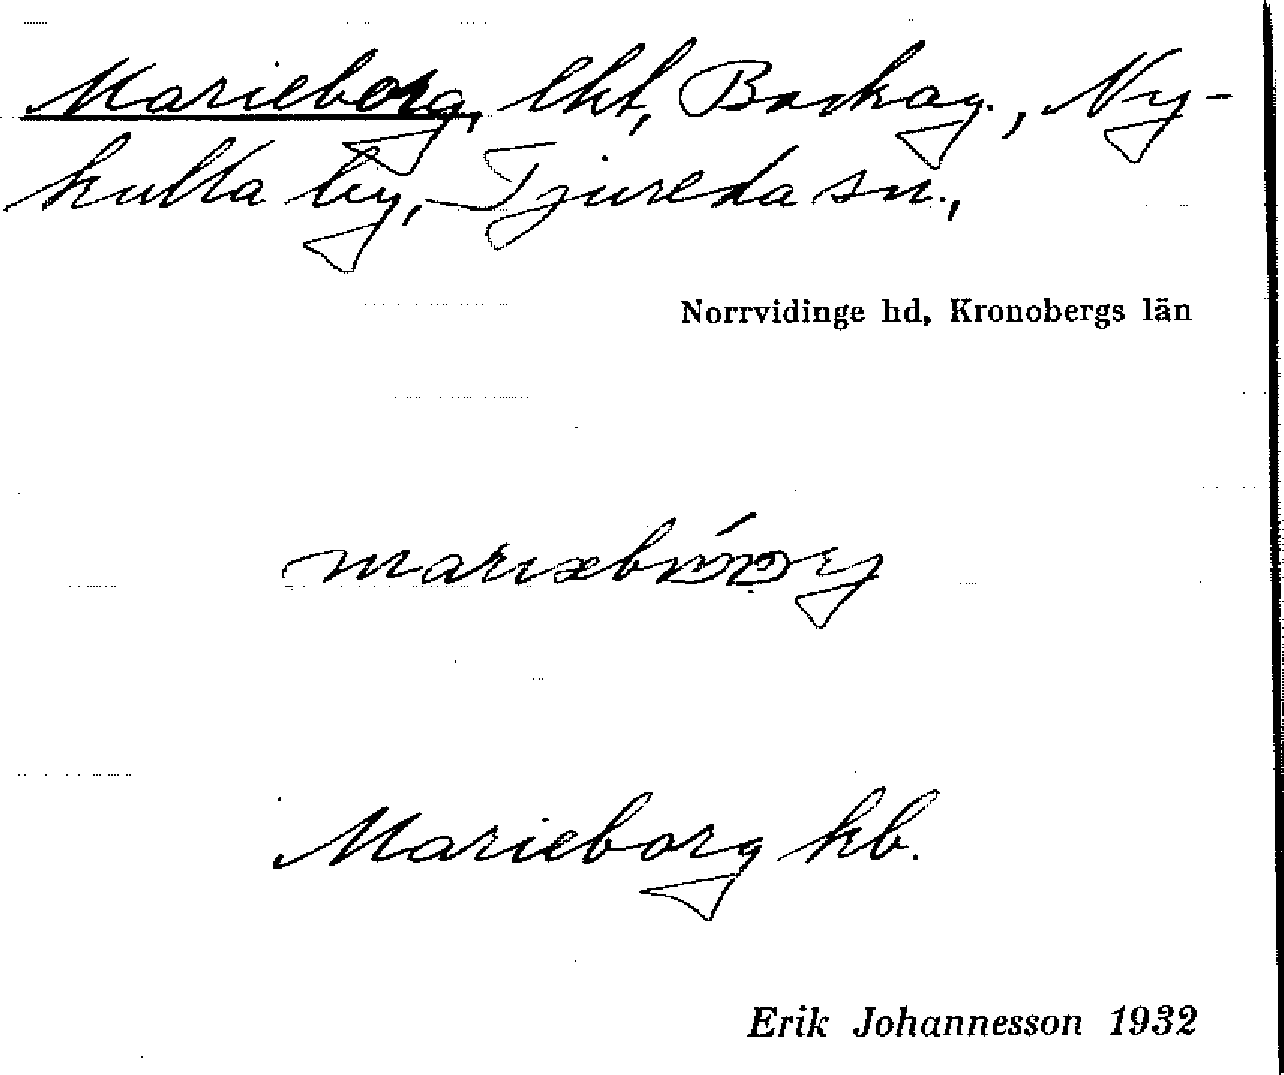 Marieborg, lht, Backag., Ny-
kulla by, Tjureda sn.,
Norrvidinge hd, Kronobergs län
Marieborg kb.
Erik Johannesson 1932